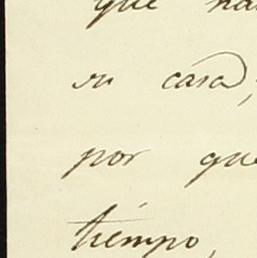 que ha
su casa,
por que
tiempo,